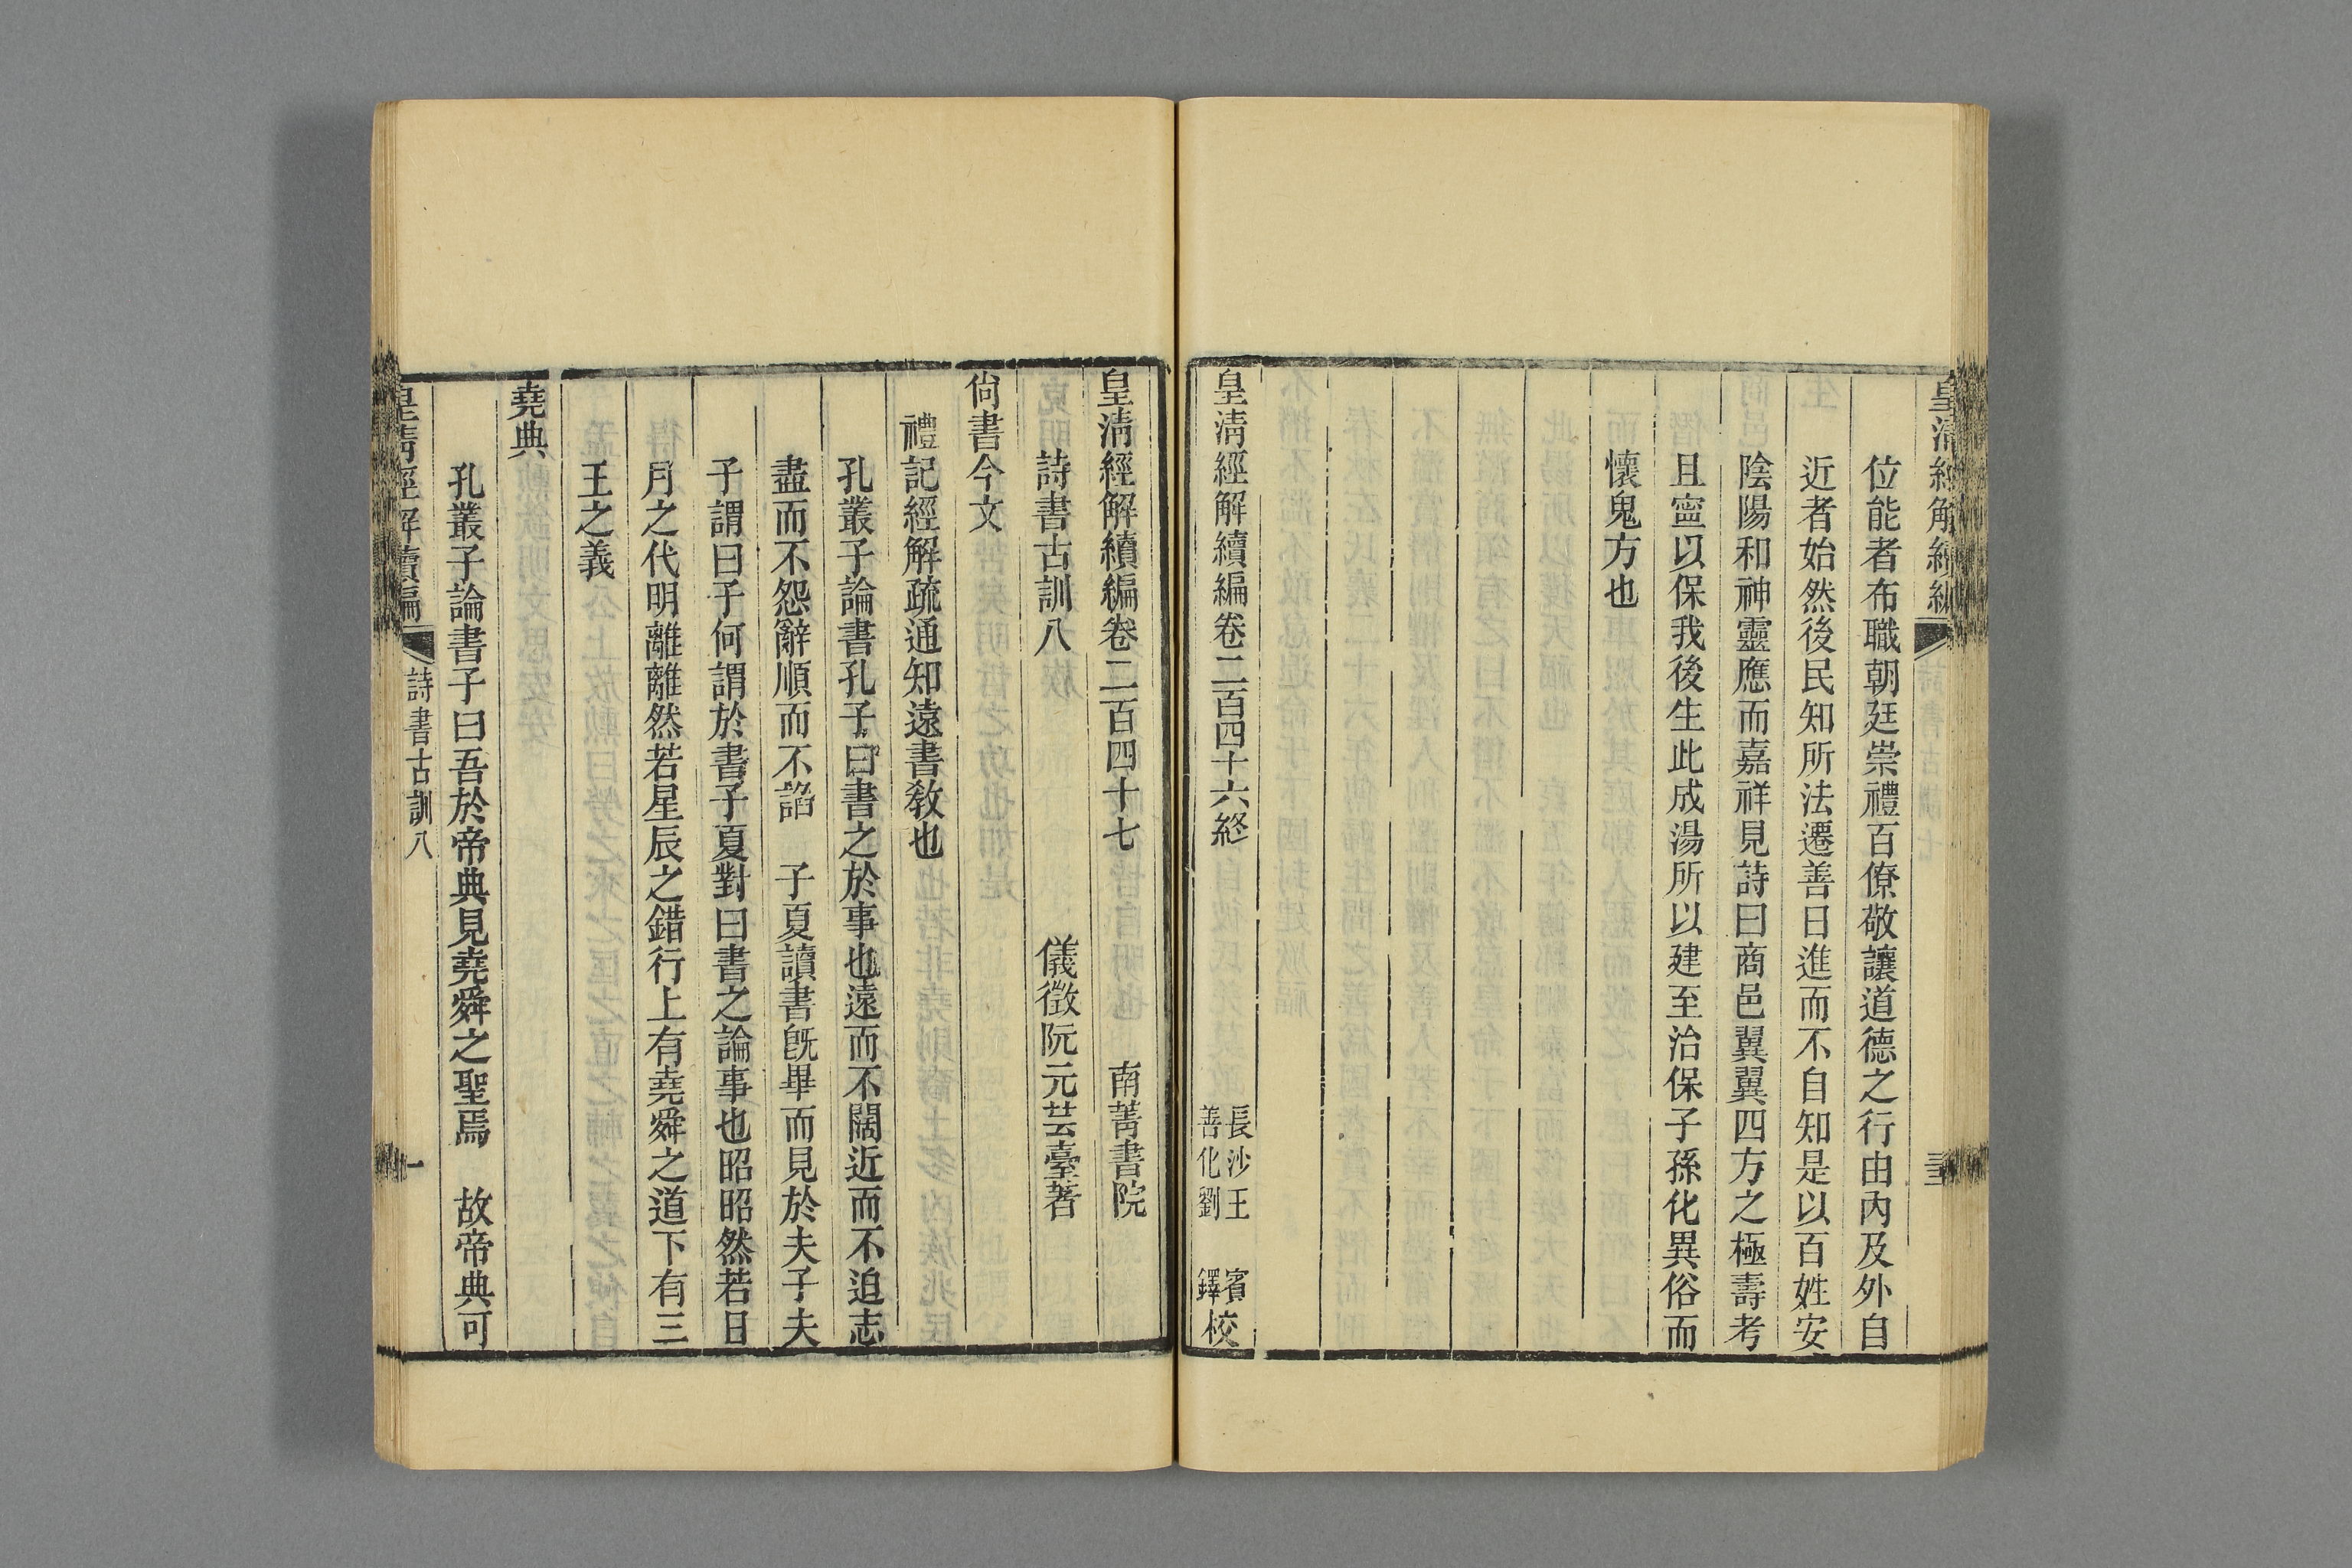 皇清經解續編
位能者布職朝廷崇禮百僚敬讓道德之行由內及外自
近者始然後民知所法遷善日進而不自知是以百姓安
陰陽和神靈應而嘉祥見詩曰商邑翼翼四方之極壽考
且寍以保我後生此成湯所以建至治保子孫化異俗而
懷鬼方也
皇清經解續編卷二百四十六終
長沙王 賓
善化劉 鐸
校
皇清經解續編卷二百四十七 南菁書院
詩書古訓八 儀徵阮元芸臺著
尙書今文
禮記經解疏通知遠書敎也
孔叢子論書孔子曰書之於事也遠而不闊近而不迫志
盡而不怨辭順而不諂 子夏讀書旣畢而見於夫子夫
子謂曰子何謂於書子夏對曰書之論事也昭昭然若日
月之代明離離然若星辰之錯行上有堯舜之道下有三
王之義
堯典
孔叢子論書子曰吾於帝典見堯舜之聖焉 故帝典可
皇清經解續編 詩書古訓八 一